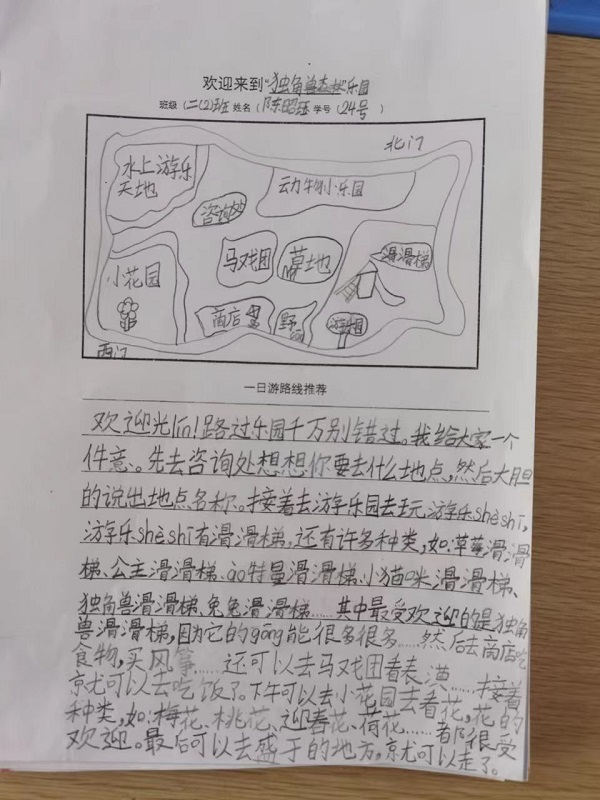 欢迎来到“独角兽森林”乐园
班级（二(2)班 姓名（陈昭廷 学号（24号 ）
北门
水上游乐
天地
动牛物小乐园
咨询处
马戏团
墓地
滑滑梯
小花园
商店
野
西门
一日游路线推荐
欢迎光lín!路过乐园千万别错过。我给大家一个
件意。先去咨询处想想你要去什么地点,然后大胆
的说出地点名称。接着去游乐园去玩游乐shèshī,
游乐shèshī有滑滑梯,还有许多种类,如:草莓滑滑
梯、公主滑滑梯、ào特曼滑滑梯、小猫咪滑滑梯、
独角兽滑滑梯、兔兔滑滑梯……其中最受欢迎的是独角
兽滑滑梯,因为它的gōng能很多很多……然后去商店吃
食物,买风筝……还可以去马戏团看表演……接着
京尤可以去吃饭了。下午可以去小花园去看花,花的
种类,如:梅花、桃花、迎春花、荷花……都很受
欢迎。最后可以去盛于的地方,京尤可以走了。